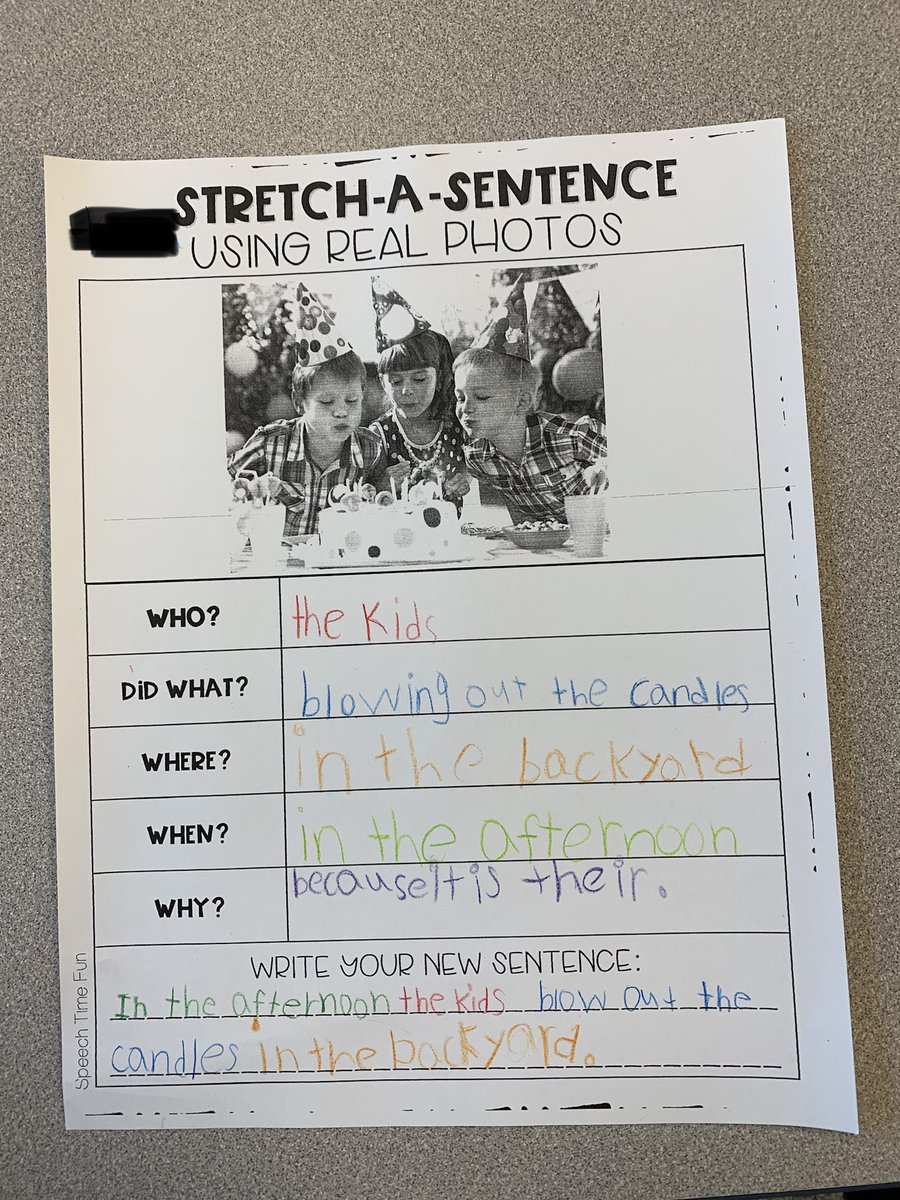 STRETCH-A-SENTENCE
USING REAL PHOTOS
WHO? the Kids
DiD WHAT? blowing out the candles
WHERE? in the backyard
WHEN? in the afternoon
WHY? because it is their.
WRITE YOUR NEW SENTENCE:
In the afternoon the kids blow out the
candles in the backyard.
Speech Time Fun